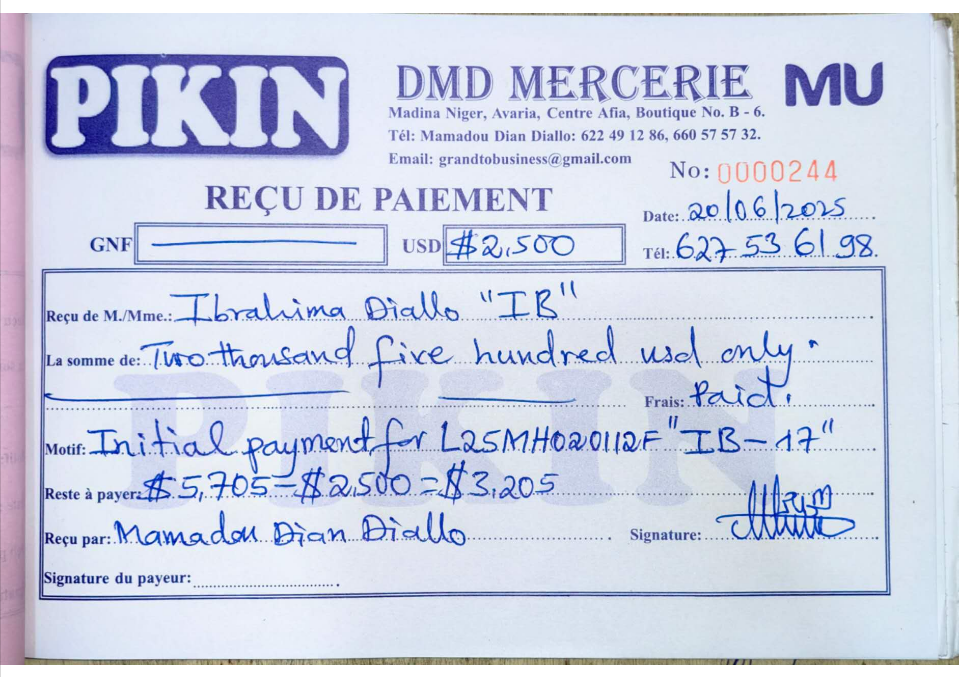 PIKIN
DMD MERCERIE MU
Madina Niger, Avaria, Centre Afia, Boutique No. B - 6.
Tél: Mamadou Dian Diallo: 622 49 12 86, 660 57 57 32.
Email: grandtobusiness@gmail.com
No: 0000244
REÇU DE PAIEMENT
Date: 20/06/2025
GNF USD $2,500
Tél: 627 53 61 98.
Reçu de M./Mme.: Ibrahima Diallo "IB"
La somme de: Two thousand five hundred usd only.
Frais: Paid.
Motif: Initial payment for L25MH020112F "IB-17"
Reste à payer: $5,705 - $2,500 = $3,205
Reçu par: Mamadou Dian Diallo Signature:
Signature du payeur:
PIKIN